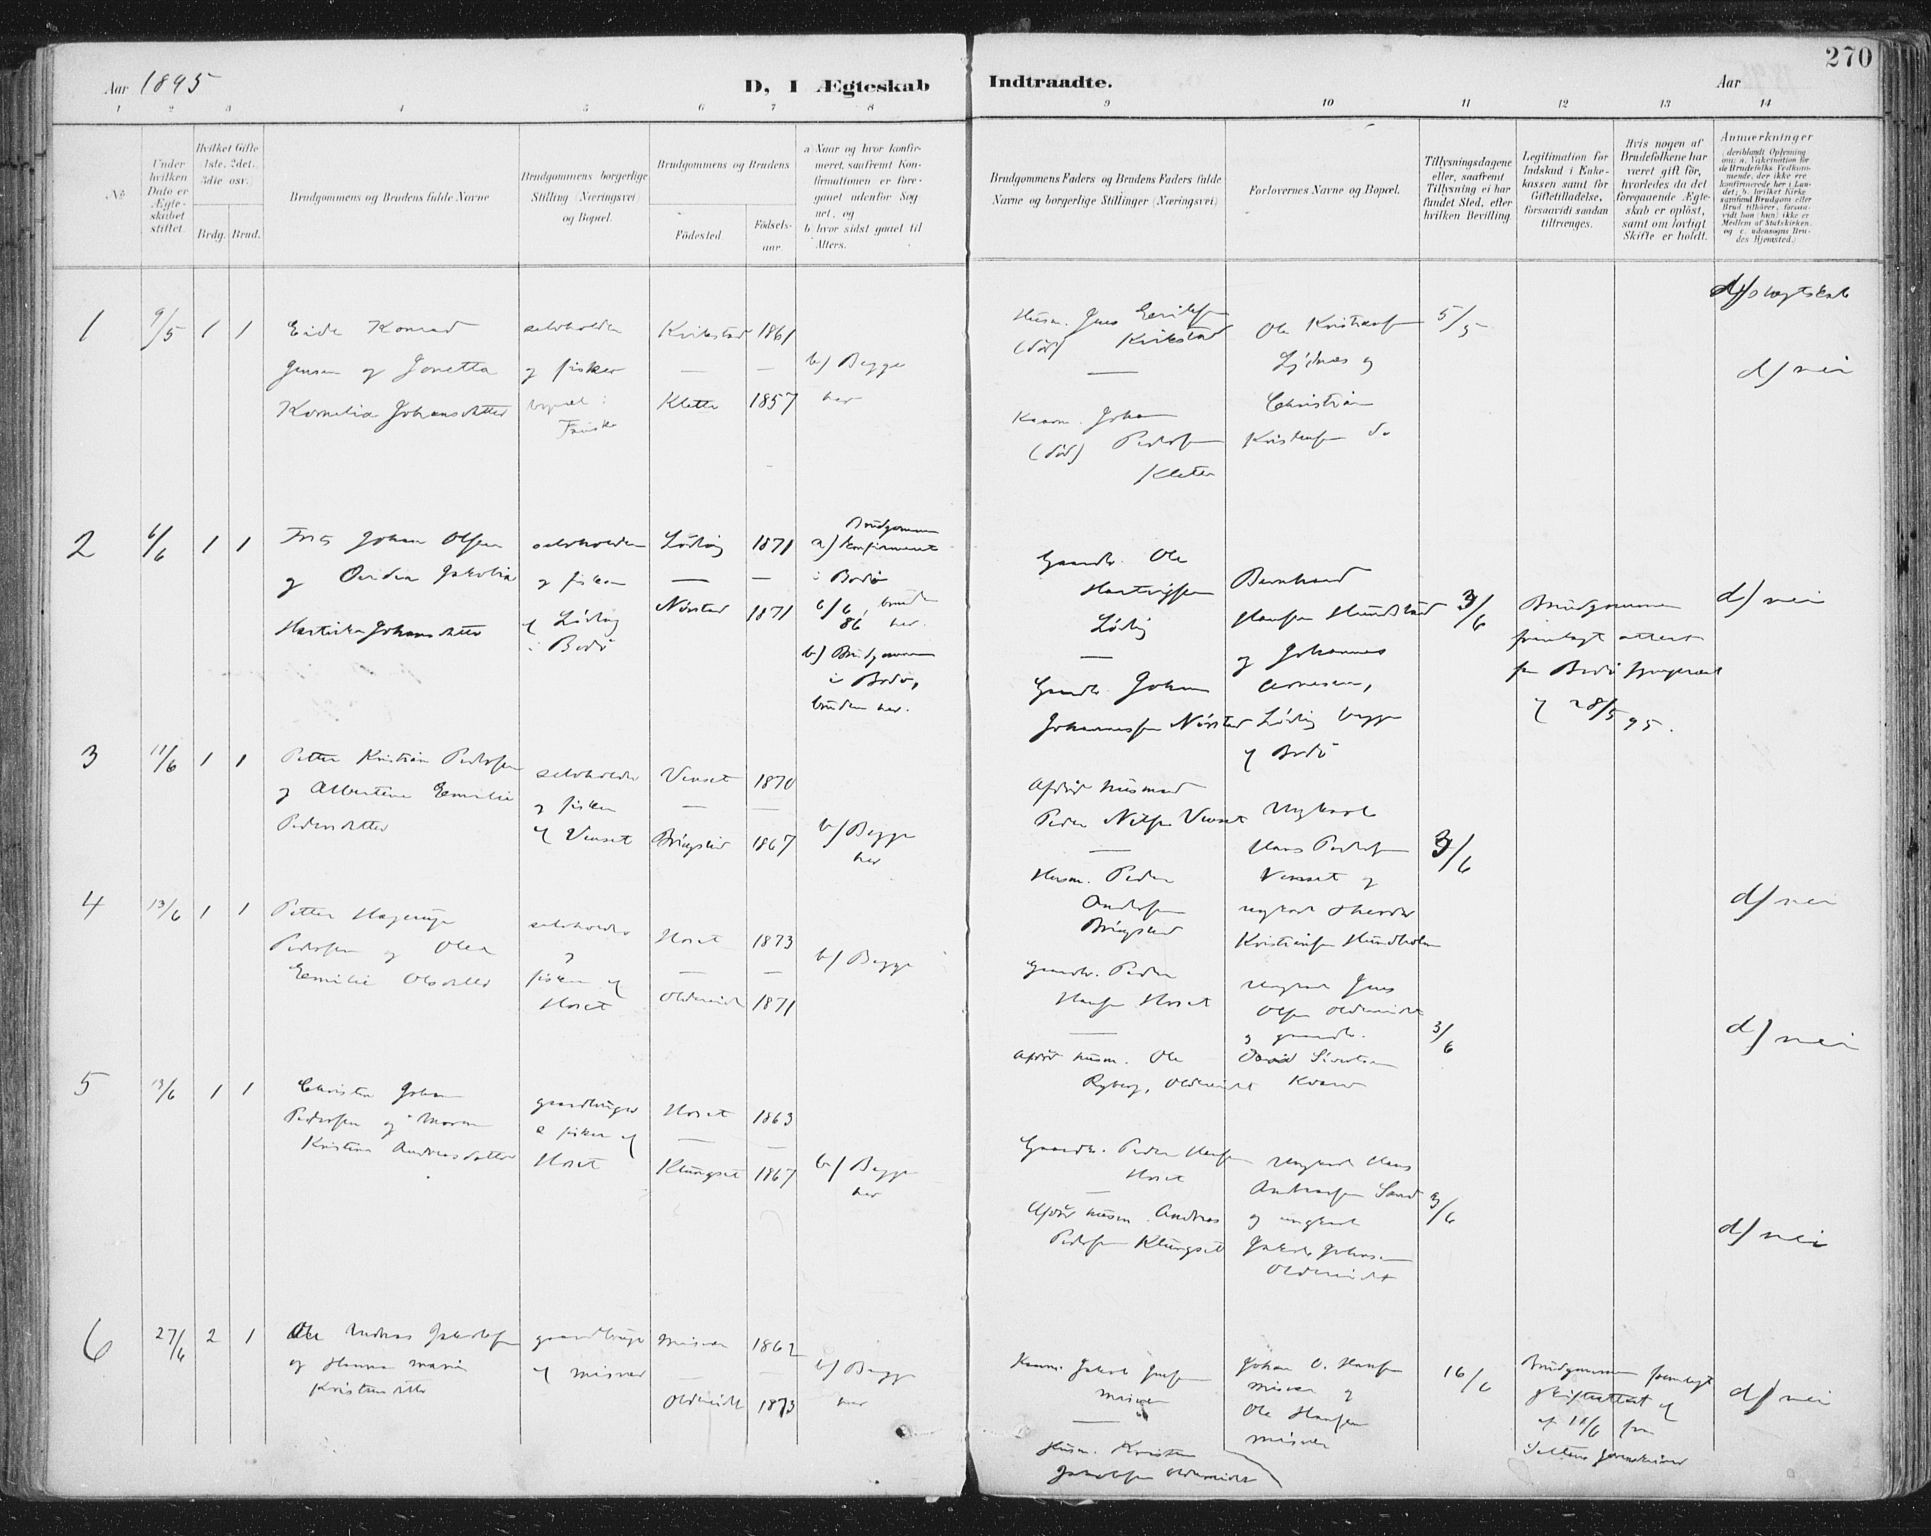 270
Aar 1895
D, I Ægteskab Indtraadte.
Aar
1 2 3 4 5 6 7 8 9 10 11 12 13 14
№
Under hvilken Dato er Ægteskabet stiftet.
Hvilket Gifte 1ste, 2det, 3die osv.
Brdg. Brud.
Brudgommens og Brudens fulde Navne
Brudgommens borgerlige Stilling (Næringsvei) og Bopæl.
Brudgommens og Brudens
Fødested
Fødselsaar.
a Naar og hvor konfirmeret, saafremt Konfirmationen er foregaaet udenfor Sognet, og
b hvor sidst gaaet til Alters.
Brudgommens Faders og Brudens Faders fulde Navne og borgerlige Stillinger (Næringsvei)
Forlovernes Navne og Bopæl.
Tillysningsdagene eller, saafremt Tillysning ei har fundet Sted, efter hvilken Bevilling
Legitimation for Indskud i Enkekassen samt for Giftetilladelse, forsaavidt saadan tiltrænges.
Hvis nogen af Brudefolkene har været gift før, hvorledes da det foregaaende Ægteskab er opløst, samt om lovligt Skifte er holdt.
Anmærkninger
(deriblandt Oplysning om: a. Vakcination for de Brudefolks Vedkommende, der ikke ere konfirmerede her i Landet; b. hvilket Kirkesamfund Brudgom eller Brud tilhører, forsaavidt han (hun) ikke er Medlem af Statskirken, og c. udensogns Brudes Hjemsted.)
1 9/5 1 1
Eide Konrad
Jensen og Jonetta
Kornelia Johansdatter
selvholder
og fisker
Kvikstad 1861
Klette 1857
b) Begge
her
Husm. Jens Eriksen
(død) Kvikstad
Johan
(død) Pedersen
Kletten
Ole Kristiansen
og
Christian
Kristensen do
5/5
d) slægtskab
d) nei
2 6/6 1 1
Johan Olsen
og Jakobia
Johansdatter
selvholder
og fisker
i Bodø
1871
Nørstad 1871
Brudgommen
a) konfirmeret
i Bodø
6/6 86, bruden her.
b) Brudgommen
i Bodø,
bruden her.
Gaardb. Ole
Hartvigsen
Gaardb. Johan
Johannessen Nørstad
Bernhard
Hansen Hundstad
og Johannes
Arnesen,
begge
af Bodø
3/6
Brudgommen
fremlagt attest
fra Bodø
af 28/5 95.
d) nei
3 11/6 1 1
Petter Kristian Pedersen
og Albertine Emilie
Pedersdatter
selvholder
og fisker
af Venset
Venset 1870
Bringslid 1867
b) Begge
her
Afdød husmand
Peder Nilsen Venset
Husm. Peder
Andersen
Bringslid
Ungkarl
Hans Pedersen
Venset og
ungkarl
Kristiansen Hundholm
3/6
d) nei
4 13/6 1 1
Petter
Pedersen og Olea
Emilie Olsdatter
selvholder
og
fisker af
Hoset
Hoset 1873
Oldereidet 1871
b) Begge
Gaardb. Peder
Hansen Hoset
Afdød husm. Ole
Ryberg, Oldereidet
Ungkarl Jens
Olsen Oldereidet
og gaardb.
Sivertsen
3/6
d) nei
5 13/6 1 1
Johan
Pedersen og Maren
Kristine Andreasdatter
gaardbruger
& fisker af
Hoset
Hoset 1863
Klungset 1867
b) Begge
her
Gaardb. Peder Hansen
Hoset
Afdød husm. Andreas
Pedersen Klungset
Ungkarl Hans
Andreasen Sand
og ungkarl
Jakob Johansen
Oldereidet
3/6
d) nei
6 27/6 2 1
Ole Andreas Jakobsen
og Hanna Maria
Kristensdatter
gaardbruger
af Misvær
Misvær 1862
Oldereidet 1873
b) Begge
her
Jakob Jensen
Misvær
Husm. Kristen
Jakobsen Oldereidet
Johan O. Hansen
Misvær og
Ole Hansen
Misvær
16/6
Brudgommen fremlagt
skifteattest af
11/6 fra
Saltens sorenskriver
d) nei